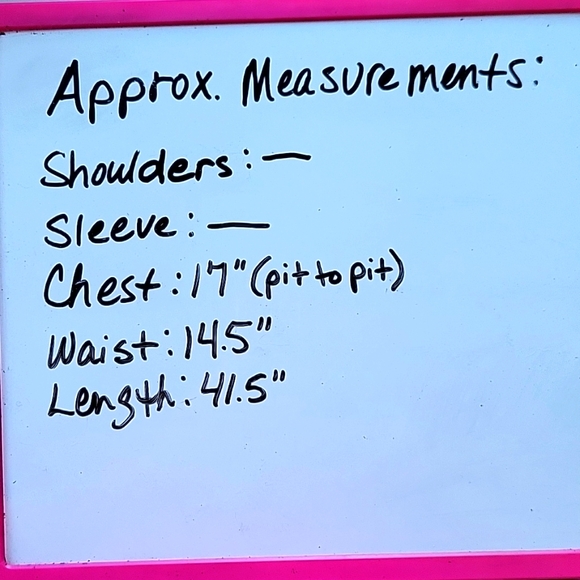 Approx. Measurements:
Shoulders: —
Sleeve: —
Chest: 17" (pit to pit)
Waist: 14.5"
Length: 41.5"